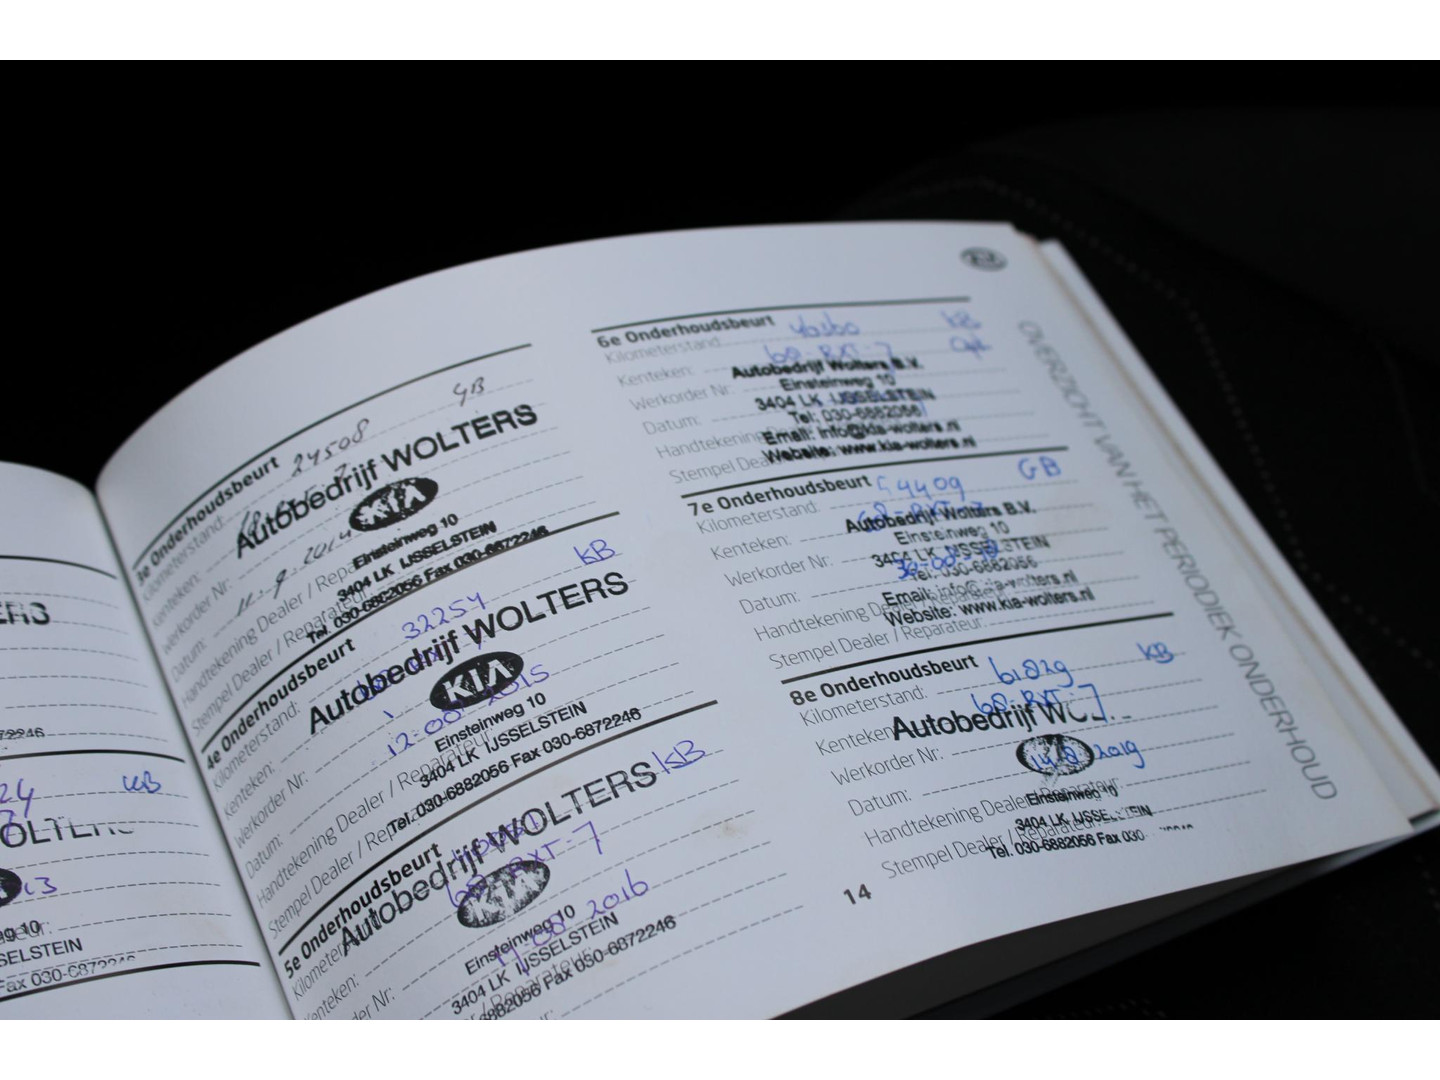 24
KB
13
SELSTEIN
Fax 030-6872246
3e Onderhoudsbeurt 24508 GB
Kilometerstand:
Kenteken:
Autobedrijf WOLTERS
Werkorder Nr:
KIA
Datum: 11-9-2014
Einsteinweg 10
Handtekening Dealer / Reparateur:
3404 LK IJSSELSTEIN
Stempel Dealer / Reparateur:
Tel. 030-6882056 Fax 030-6872246
4e Onderhoudsbeurt KB
Kilometerstand: 32254
Kenteken:
Autobedrijf WOLTERS
Werkorder Nr:
KIA
Datum: 12-08-2015
Einsteinweg 10
Handtekening Dealer / Reparateur:
3404 LK IJSSELSTEIN
Stempel Dealer /
Tel. 030-6882056 Fax 030-6872246
5e Onderhoudsbeurt KB
Autobedrijf WOLTERS
Kenteken: 68-RXT-7
KIA
2016
Einsteinweg 10
3404 LK IJSSELSTEIN
6882056 Fax 030-6872246
6e Onderhoudsbeurt KB
Kilometerstand
Kenteken: 68-RXT-7
Autobedrijf Wolters B.V.
Werkorder Nr:
Einsteinweg 10
3404 LK IJSSELSTEIN
Datum:
Tel: 030-6882056
Handtekening
Email: info@kia-wolters.nl
Stempel
Website: www.kia-wolters.nl
7e Onderhoudsbeurt GB
Kilometerstand:
Kenteken: 68-RXT-7
Autobedrijf Wolters B.V.
Werkorder Nr:
Einsteinweg 10
3404 LK IJSSELSTEIN
Datum:
Tel: 030-6882056
Handtekening
Email: info@kia-wolters.nl
Website: www.kia-wolters.nl
Stempel Dealer / Reparateur:
8e Onderhoudsbeurt KB
Kilometerstand: 61029
Kenteken 68-RXT-7
Autobedrijf
Werkorder Nr:
Datum: 14-8-2019
Handtekening Dealer
Einsteinweg 10
3404 LK
Stempel Dealer / Reparateur:
Tel. 030-6882056 Fax 030
14
OVERZICHT VAN HET PERIODIEK ONDERHOUD